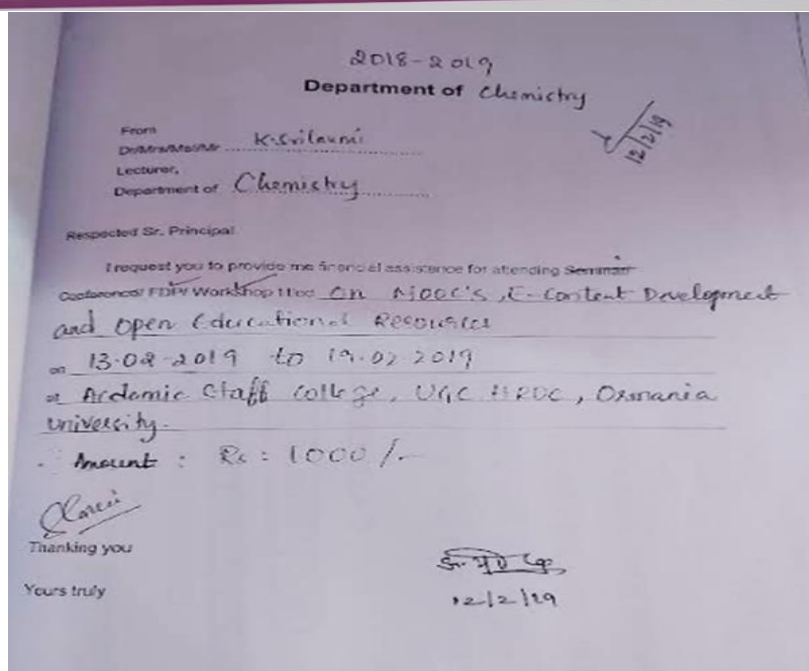 2018-2019
Department of Chemistry
12/2/19
From
Dr/Mrs/Ms/Mr K. Srilaxmi
Lecturer,
Department of Chemistry
Respected Sr. Principal
I request you to provide me financial assistance for attending Seminar
Conference/ FDP/ Workshop titled On MOOC's, E-Content Development
and Open Educational Resources
on 13-02-2019 to 19.02.2019
at Acdemic Staff College, UGC HRDC, Osmania
University.
Amount : Rs : 1000/-
Thanking you
Yours truly
12/2/19